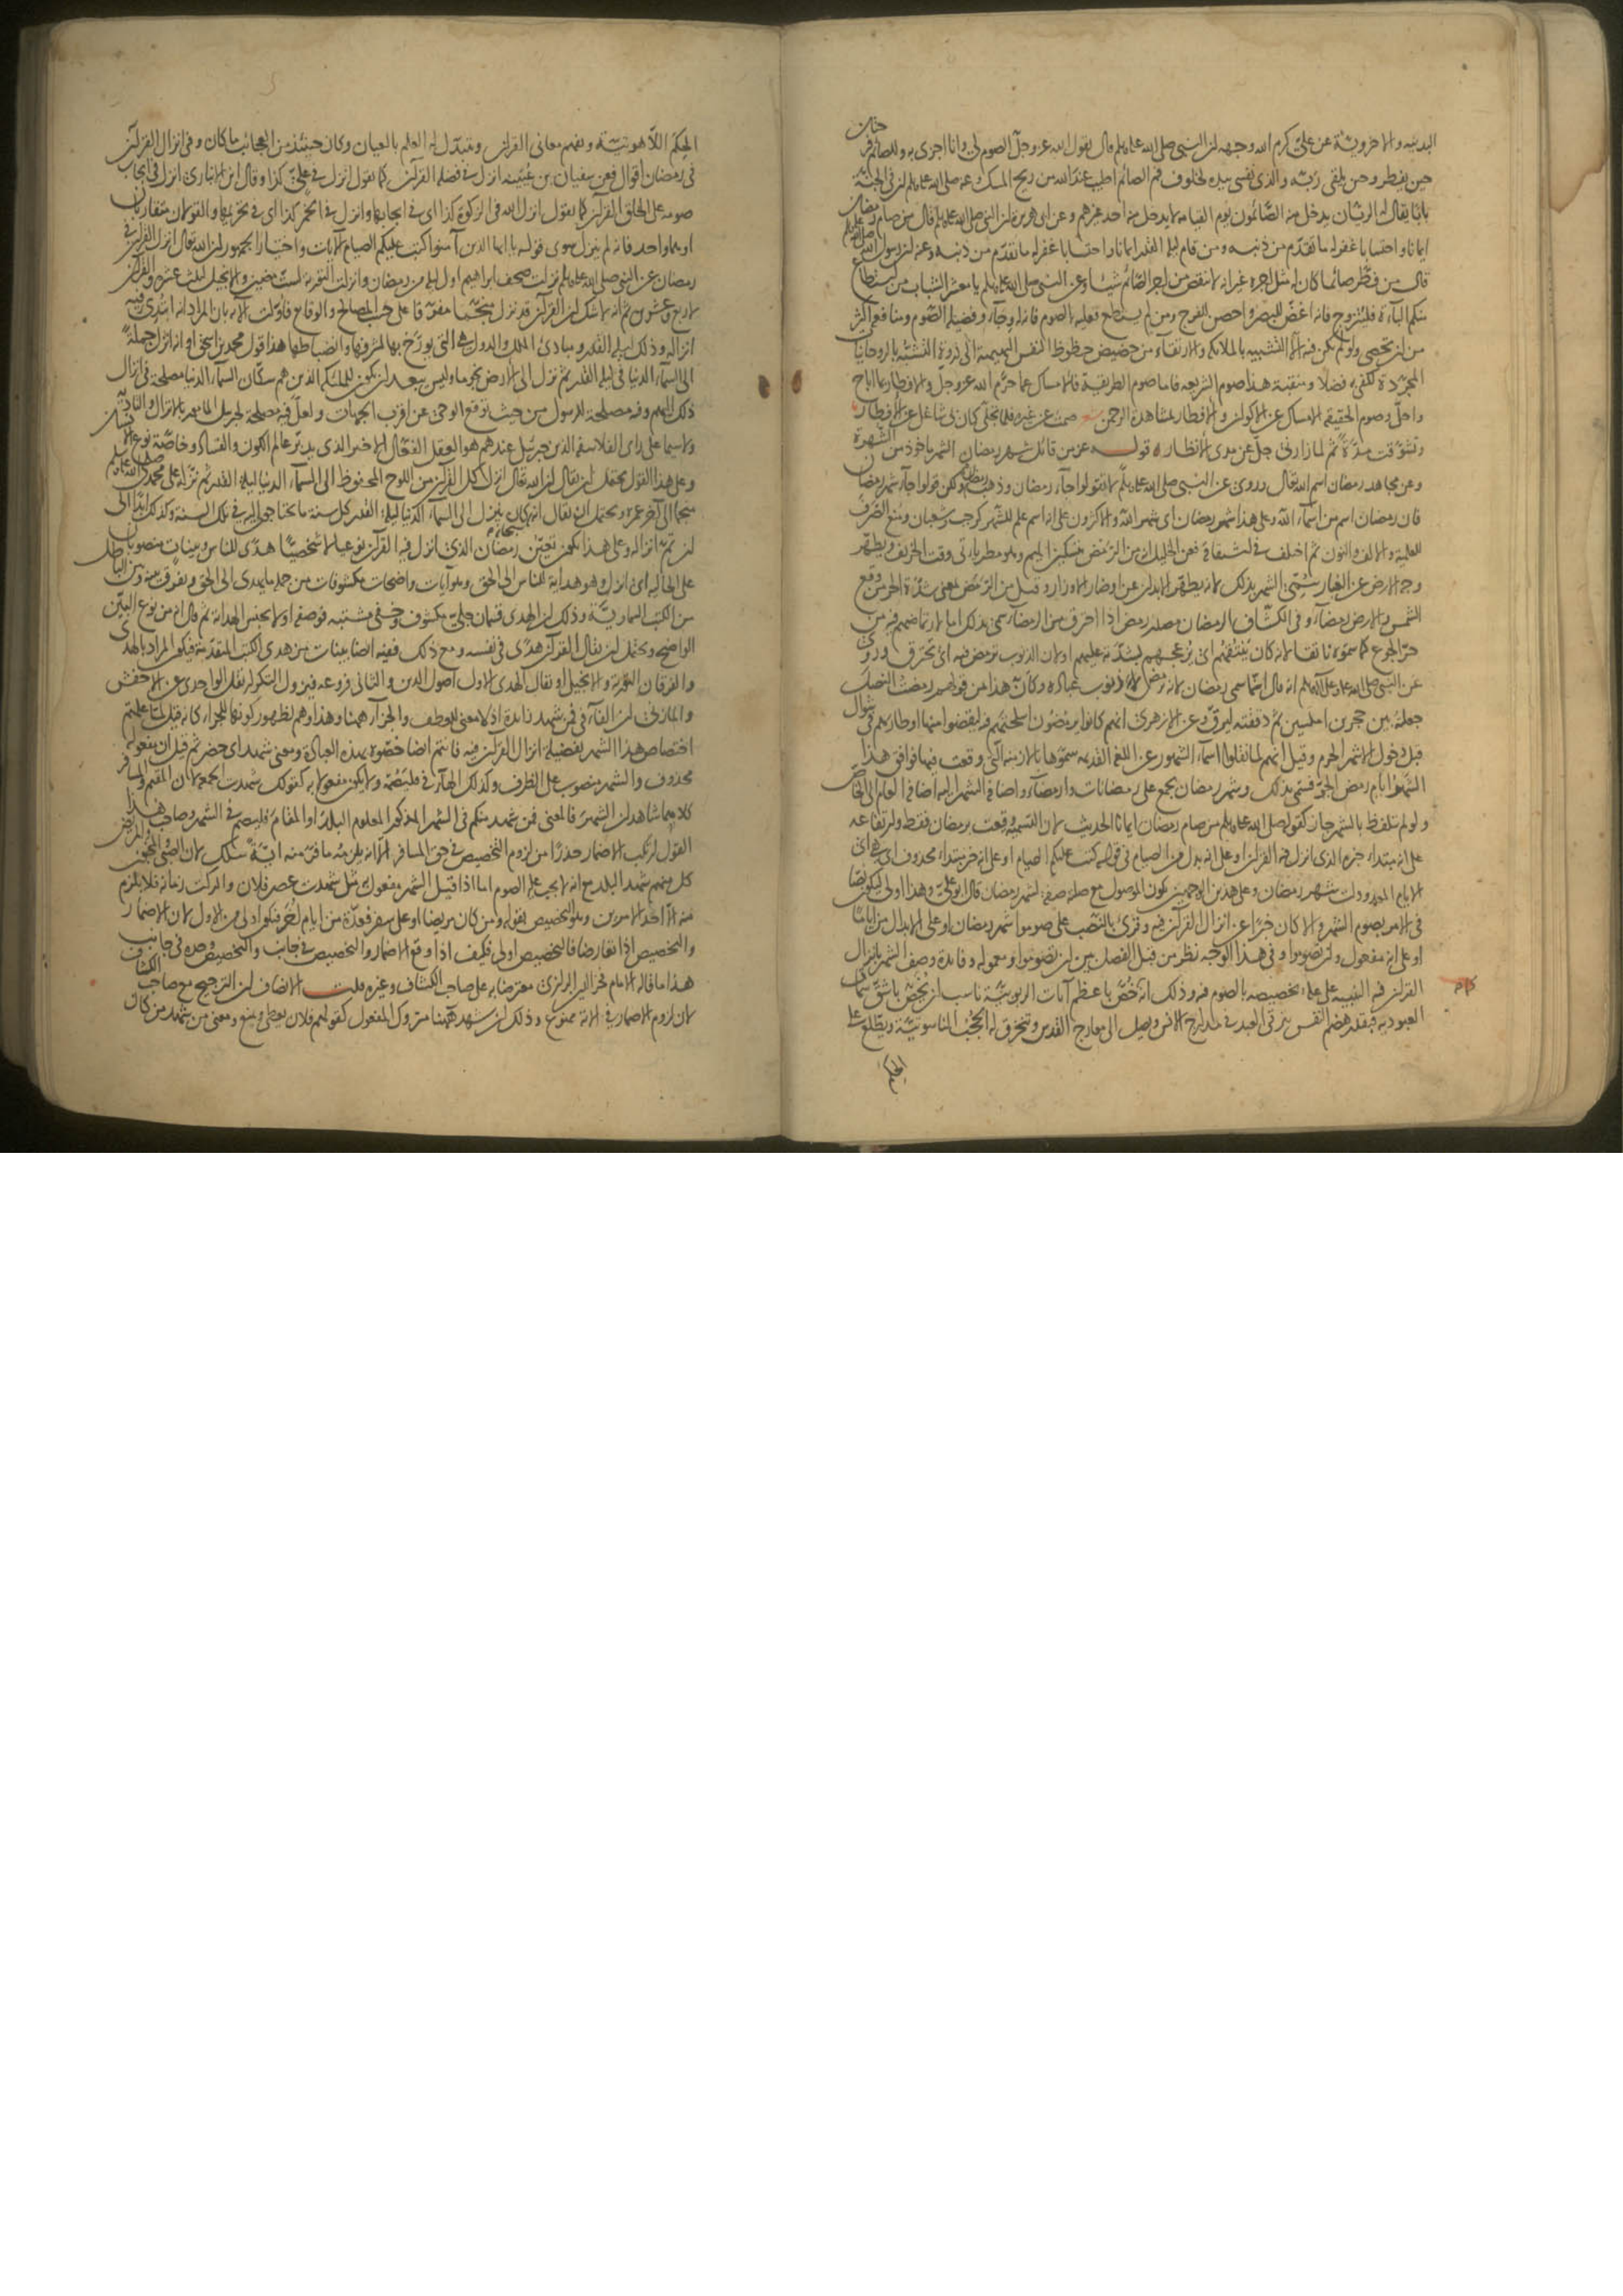 البدنية والاخروية عن علي كرم الله وجهه ان النبي صلى الله عليه وسلم قال يقول الله عز وجل الصوم لي وانا اجزي به وللصائم فرحتان
حين يفطر وحين يلقى ربه والذي نفسي بيده لخلوف فم الصائم اطيب عند الله من ريح المسك وعنه صلى الله عليه وسلم ان في الجنة
بابا يقال له الريان يدخل منه الصائمون يوم القيامة لا يدخل منه احد غيرهم وعن ابي هريرة ان النبي صلى الله عليه وسلم قال من صام رمضان
ايمانا واحتسابا غفر له ما تقدم من ذنبه ومن قام ليلة القدر ايمانا واحتسابا غفر له ما تقدم من ذنبه وعنه ان رسول الله صلى الله عليه وسلم
قال من فطر صائما كان له مثل اجره غير انه لا ينقص من اجر الصائم شيئا وعن النبي صلى الله عليه وسلم يا معشر الشباب من استطاع
منكم الباءة فليتزوج فانه اغض للبصر واحصن للفرج ومن لم يستطع فعليه بالصوم فانه له وجاء وفضيلة الصوم ومنافعه اكثر
من ان تحصى ولو لم يكن فيه الا التشبيه بالملائكة والارتقاء من حضيض حظوظ النفس البهيمية الى ذروة التشبه بالروحانيات
المجردة لكفى به فضلا ومنقبة هذا صوم الشريعة فاما صوم الطريقة فالامساك عما حرم الله عز وجل والافطار بما اباح
واحل وصوم الحقيقة الامساك عن الاكوان والافطار بمشاهدة الرحمن صمت عن غيره فلما تجلى كان لي شاغل عن الافطار
وتشوقت مدة ثم لما زارني جل عن مدى الانظار قوله عز من قائل شهر رمضان الشهر ماخوذ من الشهرة
وعن مجاهد رمضان اسم الله تعالى وروي عن النبي صلى الله عليه وسلم لا تقولوا جاء رمضان وذهب رمضان ولكن قولوا جاء شهر رمضان
فان رمضان اسم من اسماء الله وعلى هذا شهر رمضان اي شهر الله والاكثرون على انه اسم علم للشهر كرجب وشعبان ومنع الصرف
للعلمية والالف والنون ثم اختلف في اشتقاقه فعن الخليل انه من الرمض بتسكين الميم وهو مطر ياتي وقت الخريف ويطهر
وجه الارض عن الغبار سمي الشهر بذلك لانه يطهر الابدان عن اوضار الاوزار وقيل من الرمض بمعنى شدة الحر من وقع
الشمس والارض رمضاء وفي الكشاف الرمضان مصدر رمض اذا احترق من الرمضاء سمي بذلك اما لارتماضهم فيه من
حر الجوع كما سموه ناتقا لانه كان ينتقهم اي يزعجهم بشدته عليهم او لان الذنوب ترمض فيه اي تحترق وروي
عن النبي صلى الله عليه وعلى آله وسلم انه قال انما سمي رمضان لانه رمض الله ذنوب عباده وكانه هذا من قولهم رمضت النصل
جعلته بين حجرين املسين ثم دققته ليرق وعن الازهري انهم كانوا يرمضون اسلحتهم فيه ليقضوا منها اوطارهم في شوال
قبل دخول الاشهر الحرم وقيل انهم لما نقلوا اسماء الشهور عن اللغة القديمة سموها بالازمنة التي وقعت فيها فوافق هذا
الشهر ايام رمض الحر فسمي بذلك وشهر رمضان يجمع على رمضانات وارمضاء واضافة الشهر اليه اضافة العام الى الخاص
ولو لم تلفظ بالشهر جاز كقوله صلى الله عليه وسلم من صام رمضان ايمانا الحديث لان التسمية وقعت برمضان فقط وارتفاعه
على انه مبتدا خبره الذي انزل فيه القران او على انه بدل من الصيام في قوله كتب عليكم الصيام او على انه خبر مبتدا محذوف اي هي اي
الايام المعدودات شهر رمضان وعلى هذين الوجهين يكون الموصول مع صلته صفة لشهر رمضان قال ابو علي وهذا اولى ليكون نصا
في الامر بصوم الشهر والا كان خبرا عن انزال القران فيه وقرئ بالنصب على صوموا شهر رمضان او على الابدال من اياما
او على انه مفعول وان تصوموا وفي هذا الوجه نظر من قبل الفصل بين ان تصوموا ومعموله وفائدة وصف الشهر بانزال
القران فيه التنبيه على علة تخصيصه بالصوم فيه وذلك انه لما خص باعظم آيات الربوبية ناسب ان يخص باشق سمات
العبودية فبقدر هضم النفس يترقى العبد في مدارج الانس ويصل الى معارج القدس وتنخرق له الحجب الناسوتية ويطلع على
الحكم اللاهوتية ويفهم معاني القران ويتبدل له العلم بالعيان وكان حينئذ من العجائب ما كان وفي انزال القران
في رمضان اقوال فعن سفيان بن عيينة انزل في فضله القران كما تقول انزل في علي كذا وقال ابن الانباري انزل في ايجاب
صومه على الخلق القران كما تقول انزل الله في الزكوة كذا اي في ايجابها وانزل في الخمر كذا اي في تحريمها والقولان متقاربان
او هما واحد فانه لم ينزل سوى قوله يا ايها الذين آمنوا كتب عليكم الصيام الآيات واختيار الجمهور ان الله تعالى انزل القران في
رمضان عن النبي صلى الله عليه وسلم نزلت صحف ابراهيم اول ليلة من رمضان وانزلت التورية لست مضين والانجيل لثلث عشرة والقران
لاربع وعشرين ثم انه لا شك ان القران قد نزل منجما مفرقا على حسب المصالح والوقائع فاولت الآية بان المراد انه ابتدئ فيه
انزاله وذلك ليلة القدر ومبادئ الملل والدول هي التي يورخ بها لشرفها وانضباطها هذا قول محمد بن اسحق او انه انزل جملة
الى السماء الدنيا في ليلة القدر ثم نزل الى الارض نجوما وليس يبعد ان يكون للملئكة الذين هم سكان السماء الدنيا مصلحة في انزال
ذلك اليهم وفيه مصلحة للرسول من حيث توقع الوحي عن اقرب الجهات ولعل فيه مصلحة لجبريل المامور بالانزال والتادية
ولا سيما على راي الفلاسفة الذين جبرئيل عندهم هو العقل الفعال الاخير الذي يدبر عالم الكون والفساد وخاصة نوع الانسان
وعلى هذا القول يحتمل ان يقال ان الله تعالى انزل كل القران من اللوح المحفوظ الى السماء الدنيا ليلة القدر ثم نزله على محمد صلى الله عليه وسلم
منجما الى آخر عمره ويحتمل ان يقال انه كان ينزل الى السماء الدنيا ليلة القدر كل سنة ما يحتاجون اليه في تلك السنة وكذلك ابدا الى
ان تم انزاله وعلى هذا يكون تعيين رمضان الذي انزل فيه القران نوعيا لا شخصيا هدى للناس وبينات منصوبان
على الحال اي انزل وهو هداية للناس الى الحق وهو آيات واضحات مكشوفات من جملة ما يهدى الى الحق ويفرق بينه وبين الباطل
من الكتب السماوية وذلك ان الهدى قسمان جلي مكشوف وخفي مشتبه فوصفه اولا بجنس الهداية ثم قال انه من نوع البين
الواضح ويحتمل ان يقال القران هدى في نفسه ومع ذلك ففيه ايضا بينات من هدى الكتب المتقدمة فيكون المراد بالهدى
والفرقان التورية والانجيل او يقال الهدى الاول اصول الدين والثاني فروعه فيزول التكرار نقل الواحدي عن الاخفش
والمازني ان الفاء في فمن شهد زايدة اذ لا معنى للعطف والجزاء ههنا وهذا وهم لظهور كونها للجزاء كانه قيل لما علمتم
اختصاص هذا الشهر بفضيلة انزال القران فيه فانتم ايضا خصوه بهذه العبادة ومعنى شهد اي حضر ثم قيل ان مفعوله
محذوف والشهر منصوب على الظرف وكذلك الهاء في فليصمه ولا يكون مفعولا به كقولك شهدت الجمعة لان المقيم والمسافر
كلاهما شاهدان الشهر فالمعنى فمن شهد منكم في الشهر المذكور المعلوم البلد او المقام فليصم في الشهر وصاحب هذا
القول ارتكب الاضمار حذرا من لزوم التخصيص في حق المسافر الا انه يلزمه ما فر منه ايضا لان الصبي والمجنون والمريض
كل منهم شهد البلد مع انه لا يجب عليه الصوم اما اذا قيل الشهر مفعول به مثل شهدت عصر فلان وادركت زمانه فلا يلزم
منه الا احد الامرين وهو التخصيص بقوله ومن كان مريضا او على سفر فعدة من ايام اخر فيكون اولى من الاول لان الاضمار
والتخصيص اذا تعارضا فالتخصيص اولى فكيف اذا وقع الاضمار والتخصيص في جانب والتخصيص وحده في جانب
هذا ما قاله الامام فخر الدين الرازي معترضا به على صاحب الكشاف وغيره قلت الانصاف ان الترجيح مع صاحب الكشاف
لان لزوم الاضمار في الآية ممنوع وذلك ان شهد ههنا متروك المفعول كقولهم فلان يعطي ويمنع ومعنى من شهد من كان